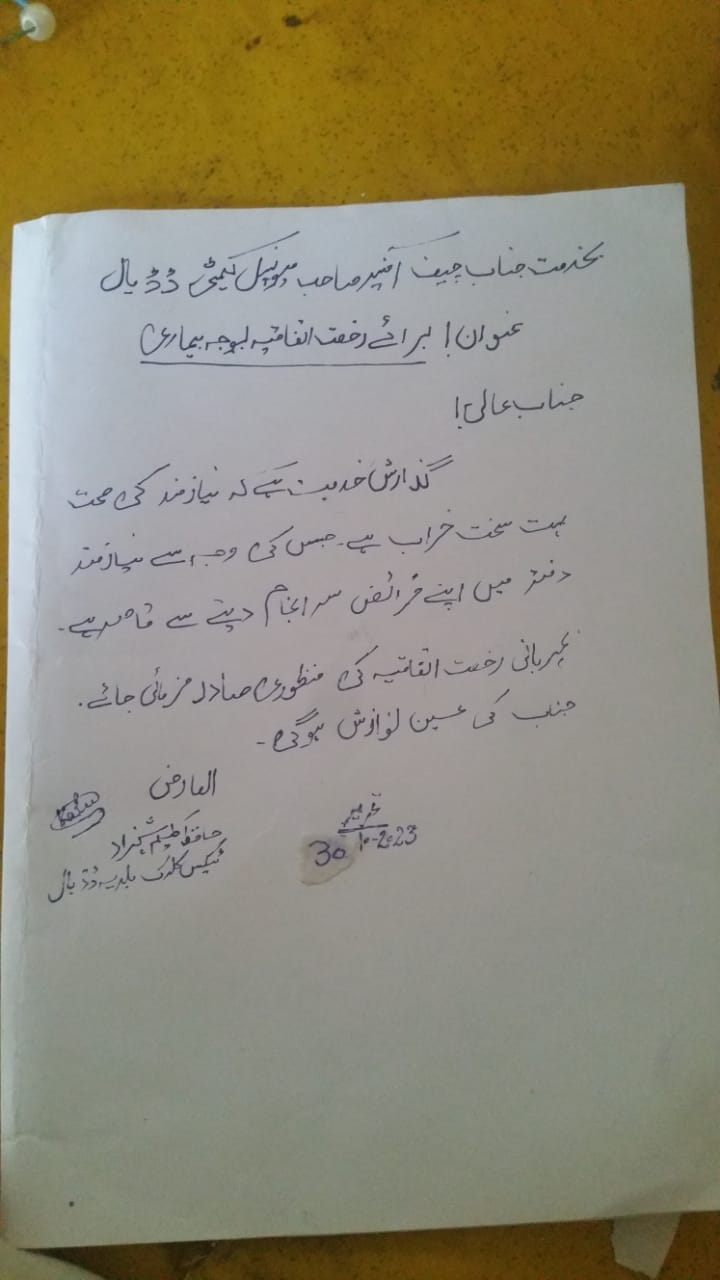 بخدمت جناب چیف آفیسر صاحب میونسپل کمیٹی ڈڈیال
عنوان! برائے رخصت اتفاقیہ بوجہ بیماری
جناب عالی!
گذارش خدمت ہے کہ نیازمند کی صحت
بہت سخت خراب ہے۔ جس کی وجہ سے نیازمند
دفتر میں اپنے فرائض سرانجام دینے سے قاصر ہے۔
بمہربانی رخصت اتفاقیہ کی منظوری صادر فرمائی جائے۔
جناب کی عین نوازش ہوگی۔
العارض
تحریر
30 10-2023
حافظ شہزاد
ٹیکس کلرک بلدیہ ڈڈیال